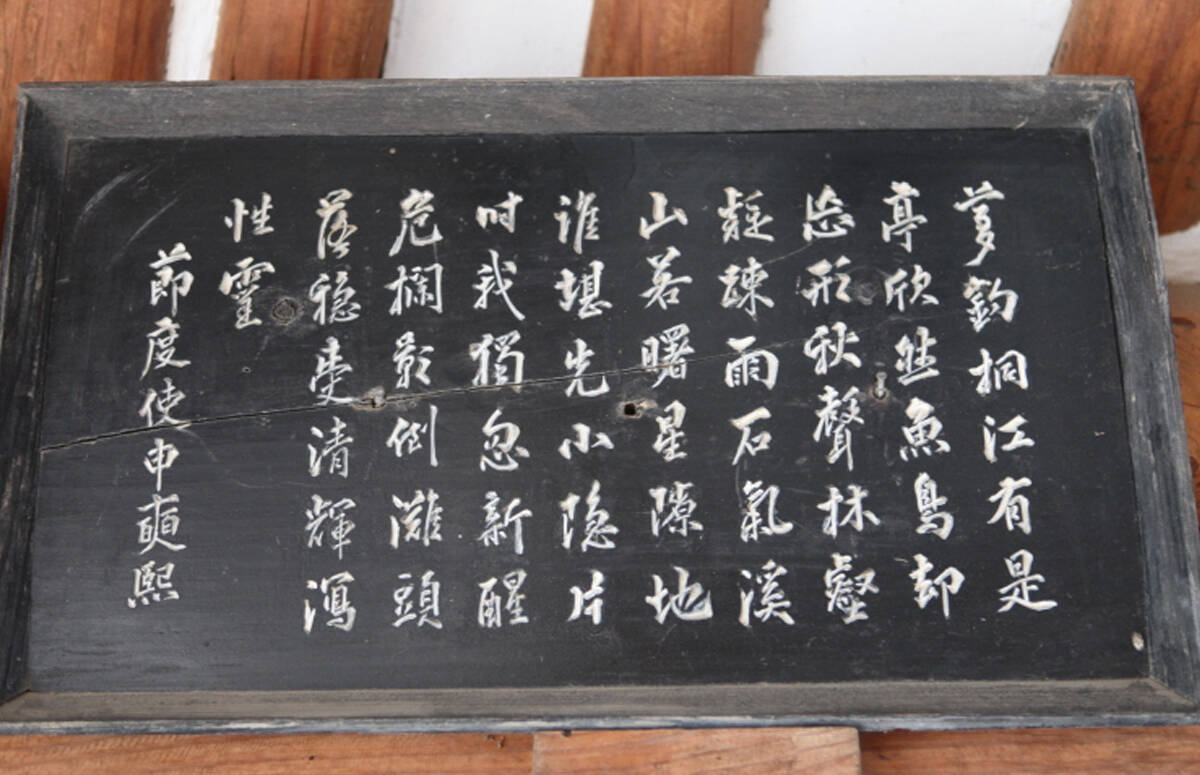 夢釣桐江有是
亭欣然魚鳥却
忘形秋聲林壑
疑疎雨石氣溪
山若曙星隙地
誰堪先小隱片
时我獨忽新醒
危欄影倒灘頭
落穩使清輝瀉
性靈
節度使申奭熙